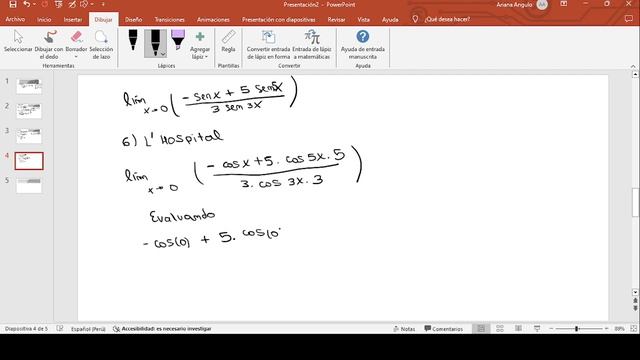 Presentación2 - PowerPoint
Ariana Angulo
AA
Archivo Inicio Insertar Dibujar Diseño Transiciones Animaciones Presentación con diapositivas Revisar Vista Ayuda ¿Qué desea hacer?
Seleccionar Dibujar con el dedo Selección de lazo Agregar lápiz Regla Convertir entrada de lápiz en forma Entrada de lápiz a matemáticas Ayuda de entrada manuscrita
Herramientas Lápices Plantillas Convertir Ayuda
1
2
3
4
5
lím x→0 ( (-senx + 5 sen5x) / (3 sen 3x) )
6) L' Hospital
lím x→0 ( (- cosx + 5. cos 5x. 5) / (3. cos 3x. 3) )
Evaluando
- cos(0) + 5. cos(0
Diapositiva 4 de 5 Español (Perú) Accesibilidad: es necesario investigar Notas Comentarios 89%